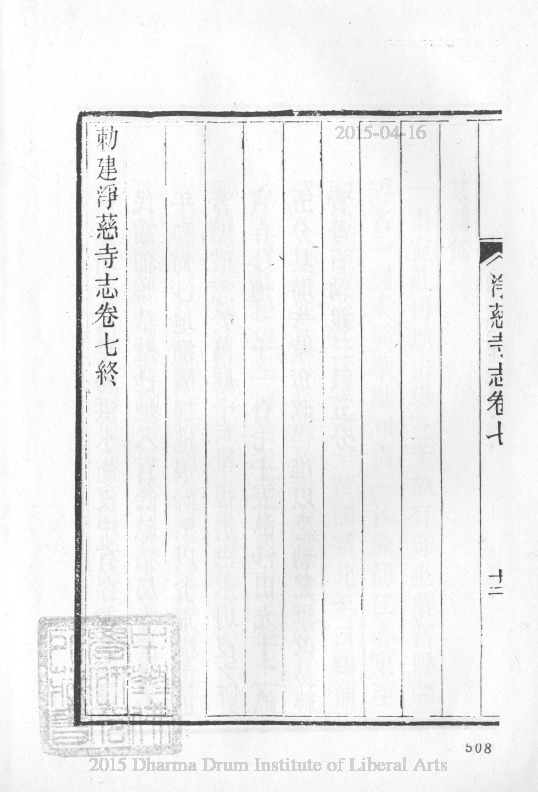 2015-04-16
淨慈寺志卷七
十二
勅建淨慈寺志卷七終
508
2015 Dharma Drum Institute of Liberal Arts